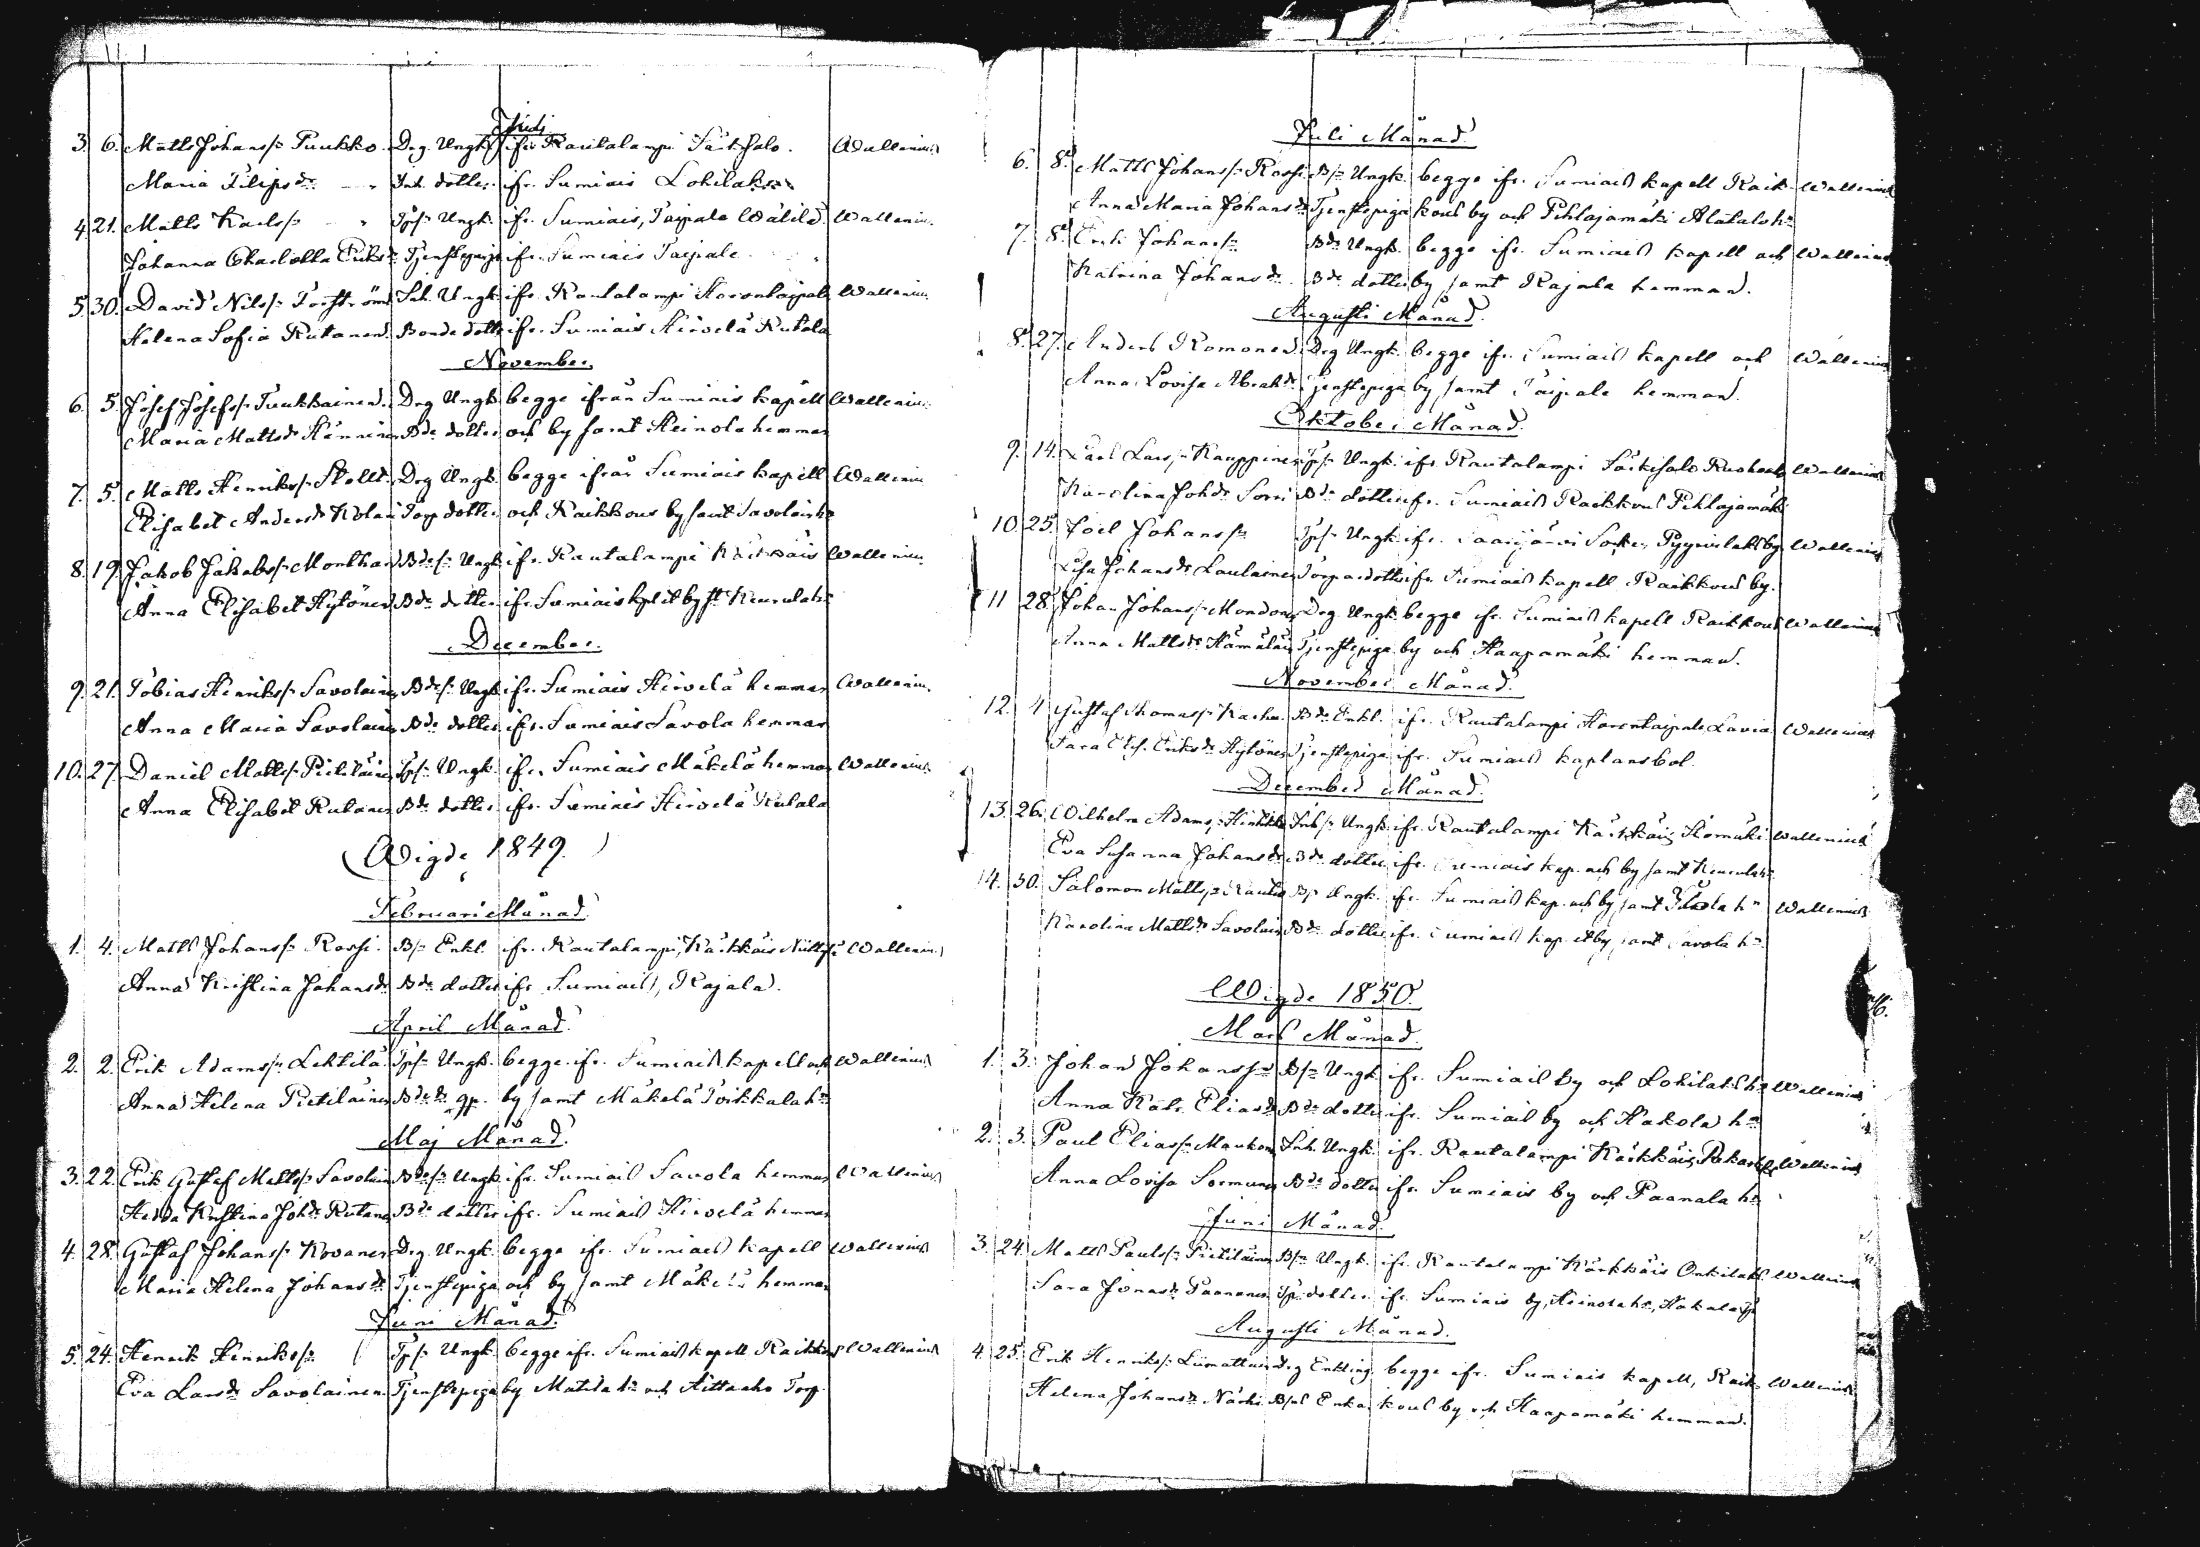 3. 6. Matts Johans/n Puukko Dr.g Ungk ifr Rautalampi Wallenius
Maria Filips dr Inh. dotter ifr. Sumiais Lokilaks
4. 21. Matts Karls/n Tp/n Ungk. ifr. Sumiais, Taipale Wälilä Wallenius
Johanna Charlotta Eriks dr Tjenstepiga ifr. Sumiais Taipale
5. 30. David Nils/n Inh. Ungk. ifr. Rautalampi Wallenius
Helena Sofia Rutanen Bonde dotter ifr. Sumiais Hirvelä Rutala
November.
6. 5. Josef Josefs/n Tuukkainen Drg Ungk begge ifrån Sumiais kapell Wallenius
Maria Matts dr Hänninen Bde dotter och by samt Heinola hemman
7. 5. Matts Henriks/n Drg Ungk begge ifrån Sumiais kapell Wallenius
Elisabet Anders dr Torp dotter och Raikkous by samt
8. 19. Jakob Jakobs/n Bde/n Ungk. ifr. Rautalampi Kärkkäis Wallenius
Anna Elisabet Hytönen Bde dotter ifr. Sumiais
December.
9. 21. Tobias Henriks/n Savolainen Bde/n Ungk ifr. Sumiais Hirvelä hemman Wallenius
Anna Maria Savolainen Bde dotter ifr. Sumiais Savola hemman
10. 27. Daniel Matts/n Pietiläinen Tp/n Ungk. ifr. Sumiais Mäkelä hemman Wallenius
Anna Elisabet Rutanen Bde dotter ifr. Sumiais Hirvelä Rutala
Wigde 1849.
Februari Månad.
1. 4. Matts Johans/n Rossi. B/n Enkl. ifr. Rautalampi, Kärkkäis Wallenius
Anna Kristina Johans dr Bde dotter ifr. Sumiais, Rajala.
April Månad.
2. 2. Erik Adams/n Lehtilä Tp/n Ungk. begge ifr. Sumiais kapell och Wallenius
Anna Helena Pietiläinen by samt Mäkelä
Maj Månad.
3. 22. Erik Gustaf Matts/n Savolainen Bde/n Ungk ifr. Sumiais Savola hemman Wallenius
Hedda Kristina Joh. dr Rutanen Bde dotter ifr. Sumiais Hirvelä hemman
4. 28. Gustaf Johans/n Kovanen Drg. Ungk. begge ifr. Sumiais kapell Wallenius
Maria Helena Johans dr Tjenstepiga och by samt Mäkelä hemman
Juni Månad.
5. 24. Henrik Henriks/n Tp/n Ungk. begge ifr. Sumiais kapell Raikkous Wallenius
Eva Lars dr Savolainen Tjenstepiga by Matila hn och Aittaaho Torp.
Juli Månad.
6. 8. Matts Johans/n Rossi B/n Ungk. begge ifr. Sumiais kapell Raik- Wallenius
Anna Maria Johans dr Tjenstepiga kous by och Pihlajamäki Alatalo hn
7. 8. Erik Johans/n Bde Ungk. begge ifr. Sumiais kapell och Wallenius
Katrina Johans dr Bde dotter by samt Rajala hemman.
Augusti Månad.
8. 27. Anders Romonen Drg Ungk. begge ifr. Sumiais kapell och Wallenius
Anna Lovisa Abrah. dr Tjenstepiga by samt Taipale hemman.
Oktober Månad.
9. 14. Karl Lars/n Kauppinen Tp/n Ungk. ifr. Rautalampi Wallenius
Karolina Joh. dr Sorri Bde dotter ifr. Sumiais Raikkous Pihlajamäki
10. 25. Joel Johans/n Tp/n Ungk. ifr. Saarijärvi Socken, by Wallenius
Lisa Johans dr Laulainen Torpar dotter ifr. Sumiais kapell Raikkous by.
11 28. Johan Johans/n Drg Ungk. begge ifr. Sumiais kapell Raikkous Wallenius
Anna Matts dr Hämäläin Tjenstepiga by och Haapamäki hemman.
November Månad.
12. 4 Gustaf Thomas/n Bde Enkl. ifr. Rautalampi Wallenius
Sara Elis. Eriks dr Hytönen Tjenstepiga ifr. Sumiais kaplansbol.
December Månad.
13. 26. Wilhelm Adams/n Inh/n Ungk. ifr. Rautalampi Kärkkäis Wallenius
Eva Susanna Johans dr Bde dotter ifr. Sumiais kap. och by samt
14. 30. Salomon Matts/n B/n Ungk. ifr. Sumiais kap. och by samt hn Wallenius
Karolina Matts dr Savolainen Bde dotter ifr. Sumiais kap. et by samt Savola hn
Wigde 1850.
Mars Månad.
1. 3. Johan Johans/n B/n Ungk ifr. Sumiais by och Lokilaks hn Wallenius
Anna Katr. Elias dr Bde dotter ifr. Sumiais by och Hakola hn
2. 3. Paul Elias/n Inh. Ungk. ifr. Rautalampi Kärkkäis Wallenius
Anna Lovisa Sormunen Bde dotter ifr. Sumiais by och Paanala hn
Juni Månad.
3. 24. Matts Pauls/n Pietiläinen B/n Ungk. ifr. Rautalampi Kärkkäis Onkilaks Wallenius
Sara Jonas dr Paananen Tp. dotter ifr. Sumiais by, Heinola hn, Hakala
Augusti Månad.
4. 25. Erik Henriks/n Liimattain Drg Enkling begge ifr. Sumiais kapell, Raik- Wallenius
Helena Johans dr Närhi Enka kous by och Haapamäki hemman.